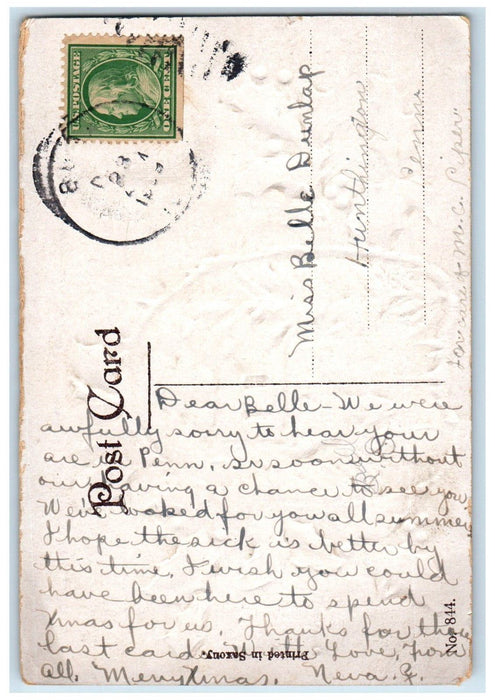 U.S. POSTAGE
ONE CENT
Post Card
Miss Belle Dunlap
Hunthington
Penn.
care of M.C. Piper.
Dear Belle - We were
awfully sorry to hear your
are in Penn, so soon without
our having a chance to see you
We've looked for you all summer
I hope the sick is better by
this time. I wish you could
have been here to spend
Xmas for us. Thanks for the
last card. Love from
all. Merry Xmas. Neva Z.
Printed in Saxony.
No. 844.